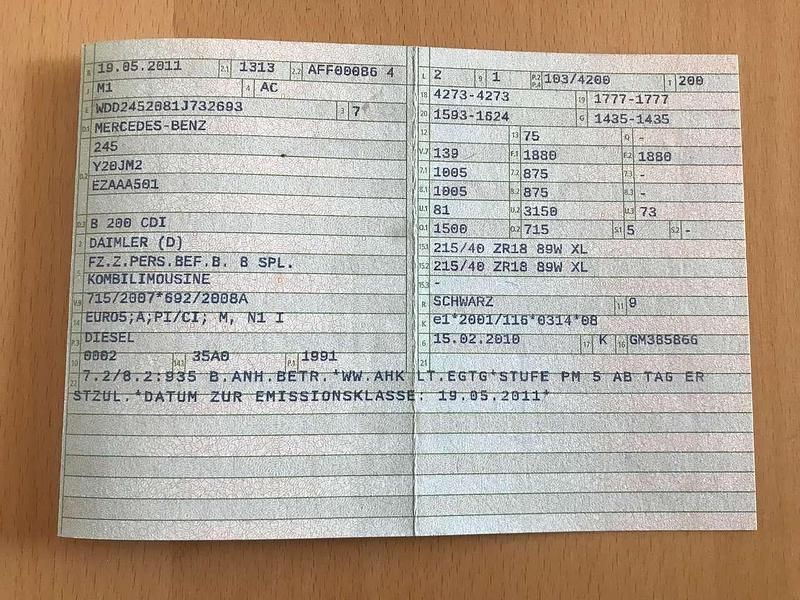 B 19.05.2011 2.1 1313 2.2 AFF00086 4
J M1 4 AC
E WDD2452081J732693 3 7
D.1 MERCEDES-BENZ
245
D.2 Y20JM2
EZAAA501
D.3 B 200 CDI
2 DAIMLER (D)
5 FZ.Z.PERS.BEF.B. 8 SPL.
KOMBILIMOUSINE
V.9 715/2007*692/2008A
14 EURO5;A;PI/CI; M, N1 I
P.3 DIESEL
10 0002 14.1 35A0 P.1 1991
22 7.2/8.2:935 B.ANH.BETR.*WW.AHK LT.EGTG*STUFE PM 5 AB TAG ER
STZUL.*DATUM ZUR EMISSIONSKLASSE: 19.05.2011*
L 2 9 1 P.2 P.4 103/4200 T 200
18 4273-4273 19 1777-1777
20 1593-1624 G 1435-1435
12 13 75 Q -
V.7 139 F.1 1880 F.2 1880
7.1 1005 7.2 875 7.3 -
8.1 1005 8.2 875 8.3 -
U.1 81 U.2 3150 U.3 73
O.1 1500 O.2 715 S.1 5 S.2 -
15.1 215/40 ZR18 89W XL
15.2 215/40 ZR18 89W XL
15.3 -
R SCHWARZ 11 9
K e1*2001/116*0314*08
6 15.02.2010 17 K 16 GM385866
21